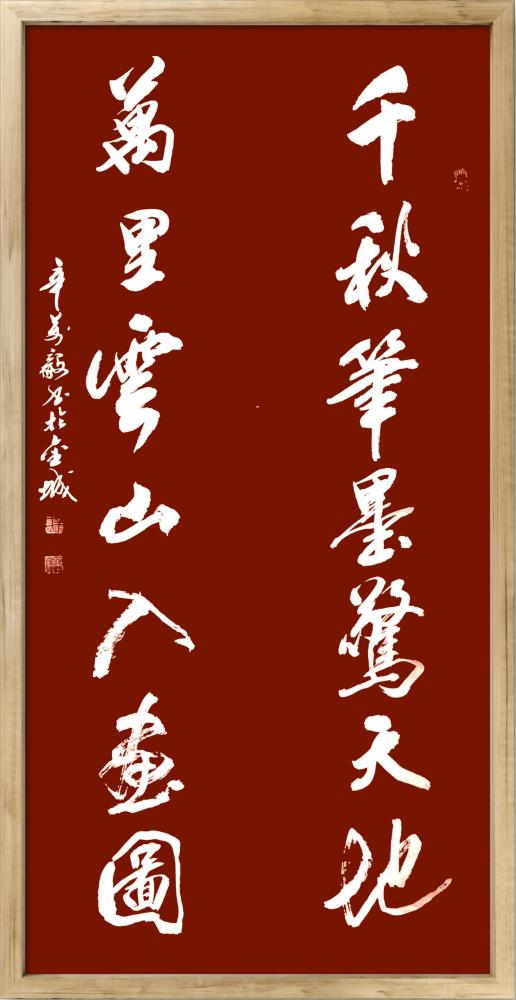 千秋筆墨驚天地
萬里雲山入畫圖
辛萬毅书於金城